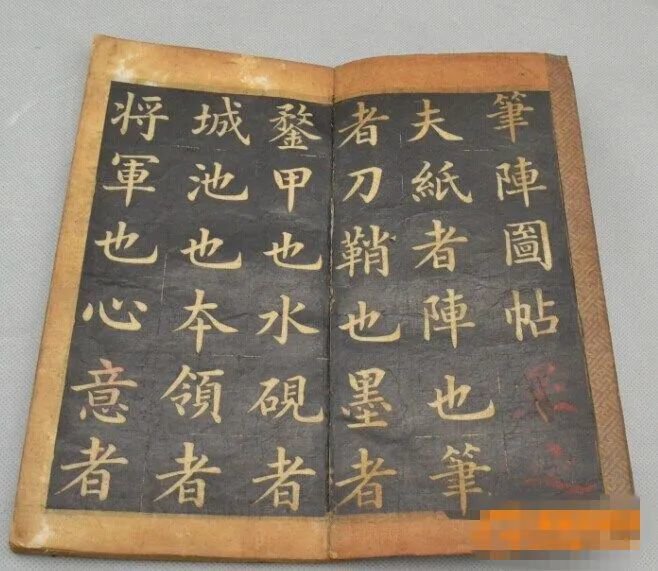 筆陣圖帖
夫紙者陣也筆
者刀鞘也墨者
鍪甲也水硯者
城池也本領者
将軍也心意者